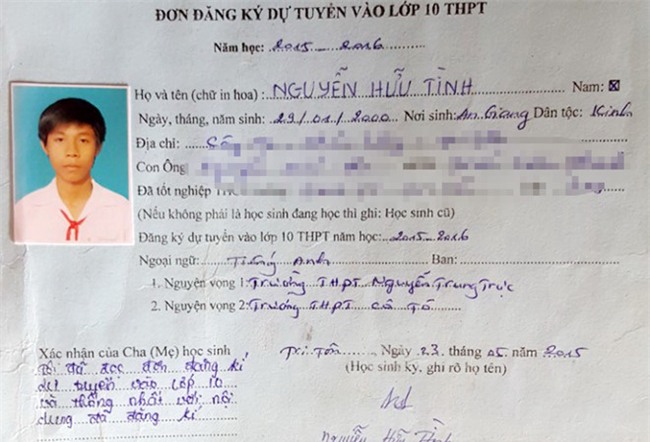 ĐƠN ĐĂNG KÝ DỰ TUYỂN VÀO LỚP 10 THPT
Năm học: 2015 - 2016
Họ và tên (chữ in hoa): NGUYỄN HỮU TÌNH Nam: ☒
Ngày, tháng, năm sinh: 29/01/2000 Nơi sinh: An Giang Dân tộc: Kinh
Địa chỉ:
Con Ông
Đã tốt nghiệp
(Nếu không phải là học sinh đang học thì ghi: Học sinh cũ)
Đăng ký dự tuyển vào lớp 10 THPT năm học: 2015-2016
Ngoại ngữ: Tiếng Anh Ban:
1. Nguyện vọng 1: Trường THPT Nguyễn Trung Trực
2. Nguyện vọng 2: Trường THPT Cô Tô
Xác nhận của Cha (Mẹ) học sinh
Tri Tôn, Ngày 23 tháng 05 năm 2015
(Học sinh ký, ghi rõ họ tên)
đã đọc đơn đăng kí
dự tuyển vào lớp 10
và thống nhất với nội
dung đã đăng kí
Nguyễn Hữu Tình